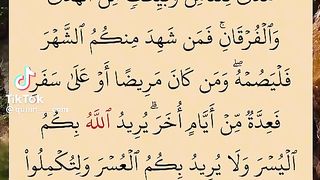 وَٱلۡفُرۡقَانِۚ فَمَن شَهِدَ مِنكُمُ ٱلشَّهۡرَ
فَلۡيَصُمۡهُۖ وَمَن كَانَ مَرِيضًا أَوۡ عَلَىٰ سَفَرٖ
فَعِدَّةٞ مِّنۡ أَيَّامٍ أُخَرَۗ يُرِيدُ ٱللَّهُ بِكُمُ
ٱلۡيُسۡرَ وَلَا يُرِيدُ بِكُمُ ٱلۡعُسۡرَ وَلِتُكۡمِلُواْ
TikTok